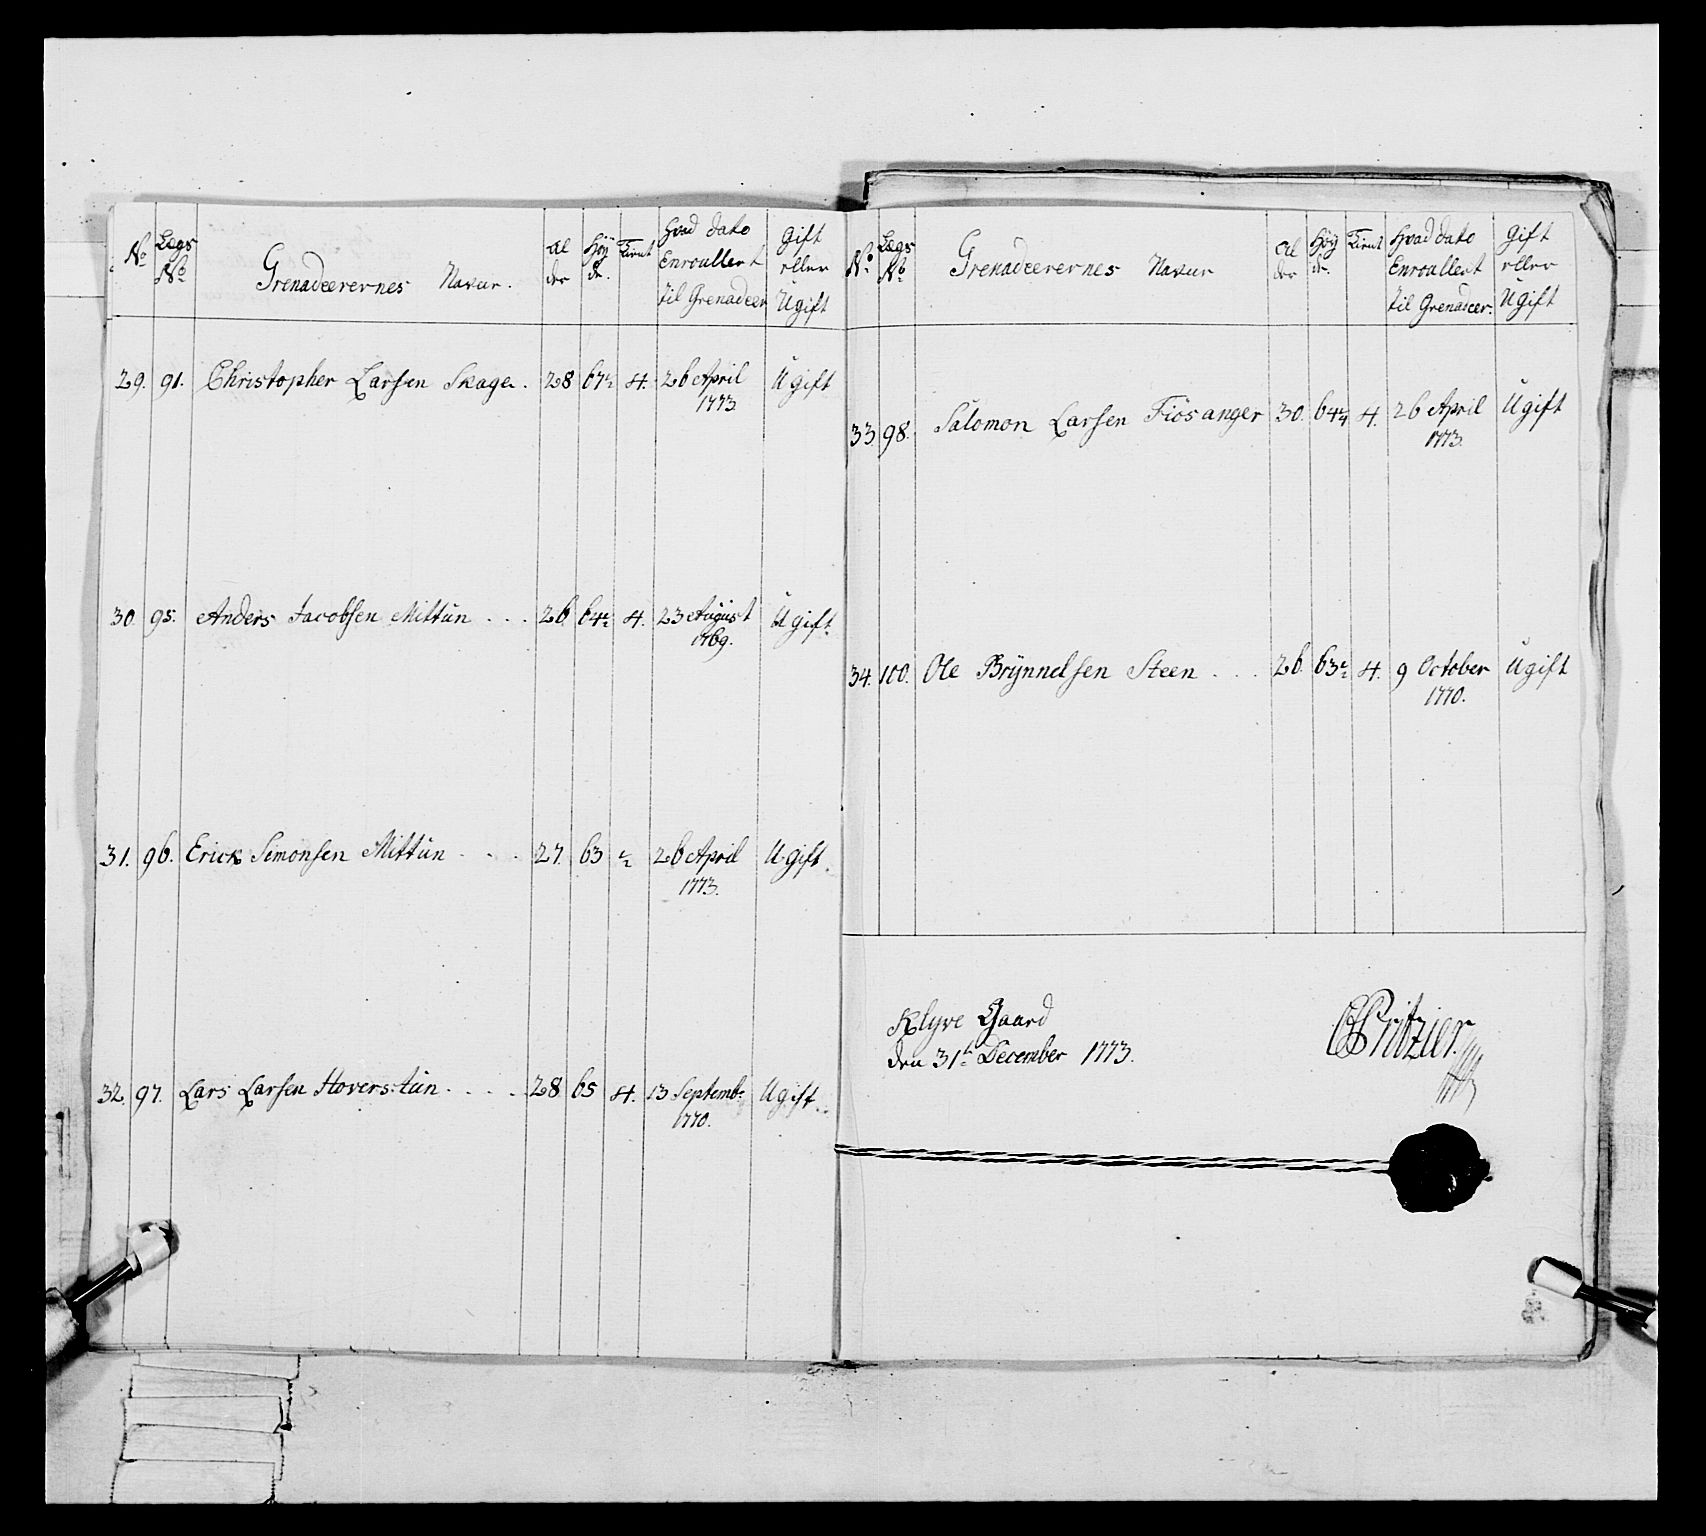 No Lægs No Grenadeerernes Navne. Al der Höy de. Tient Hvad dato Enroullert til Grenadeer Gift eller Ugift
29. 91. Christopher Larsen Skage. 28 67½ 4. 26 April 1773. Ugift
30. 95. Anders Jacobsen Mittün . . . 26. 64½ 4. 23 August 1769. Ugift.
31. 96. Erick Simonsen Mittün . . . 27. 63 ½ 26 April 1773. Ugift.
32. 97. Lars Larsen Hoverstün . . . . 28 65 4. 13 Septembr 1770. Ugift.
No. Lægs No Grenadeerernes Navne Al der Höy de. Tient Hvad dato Enroullert til Grenadeer. Gift eller Ugift
33. 98. Salomon Larsen Fiösanger 30. 64¼ 4. 26 April 1773. Ugift
34. 100. Ole Brÿnnelsen Steen . . . 26. 63½ 4. 9 October 1770. Ugift
Klyve Gaard
den 31t. December 1773.